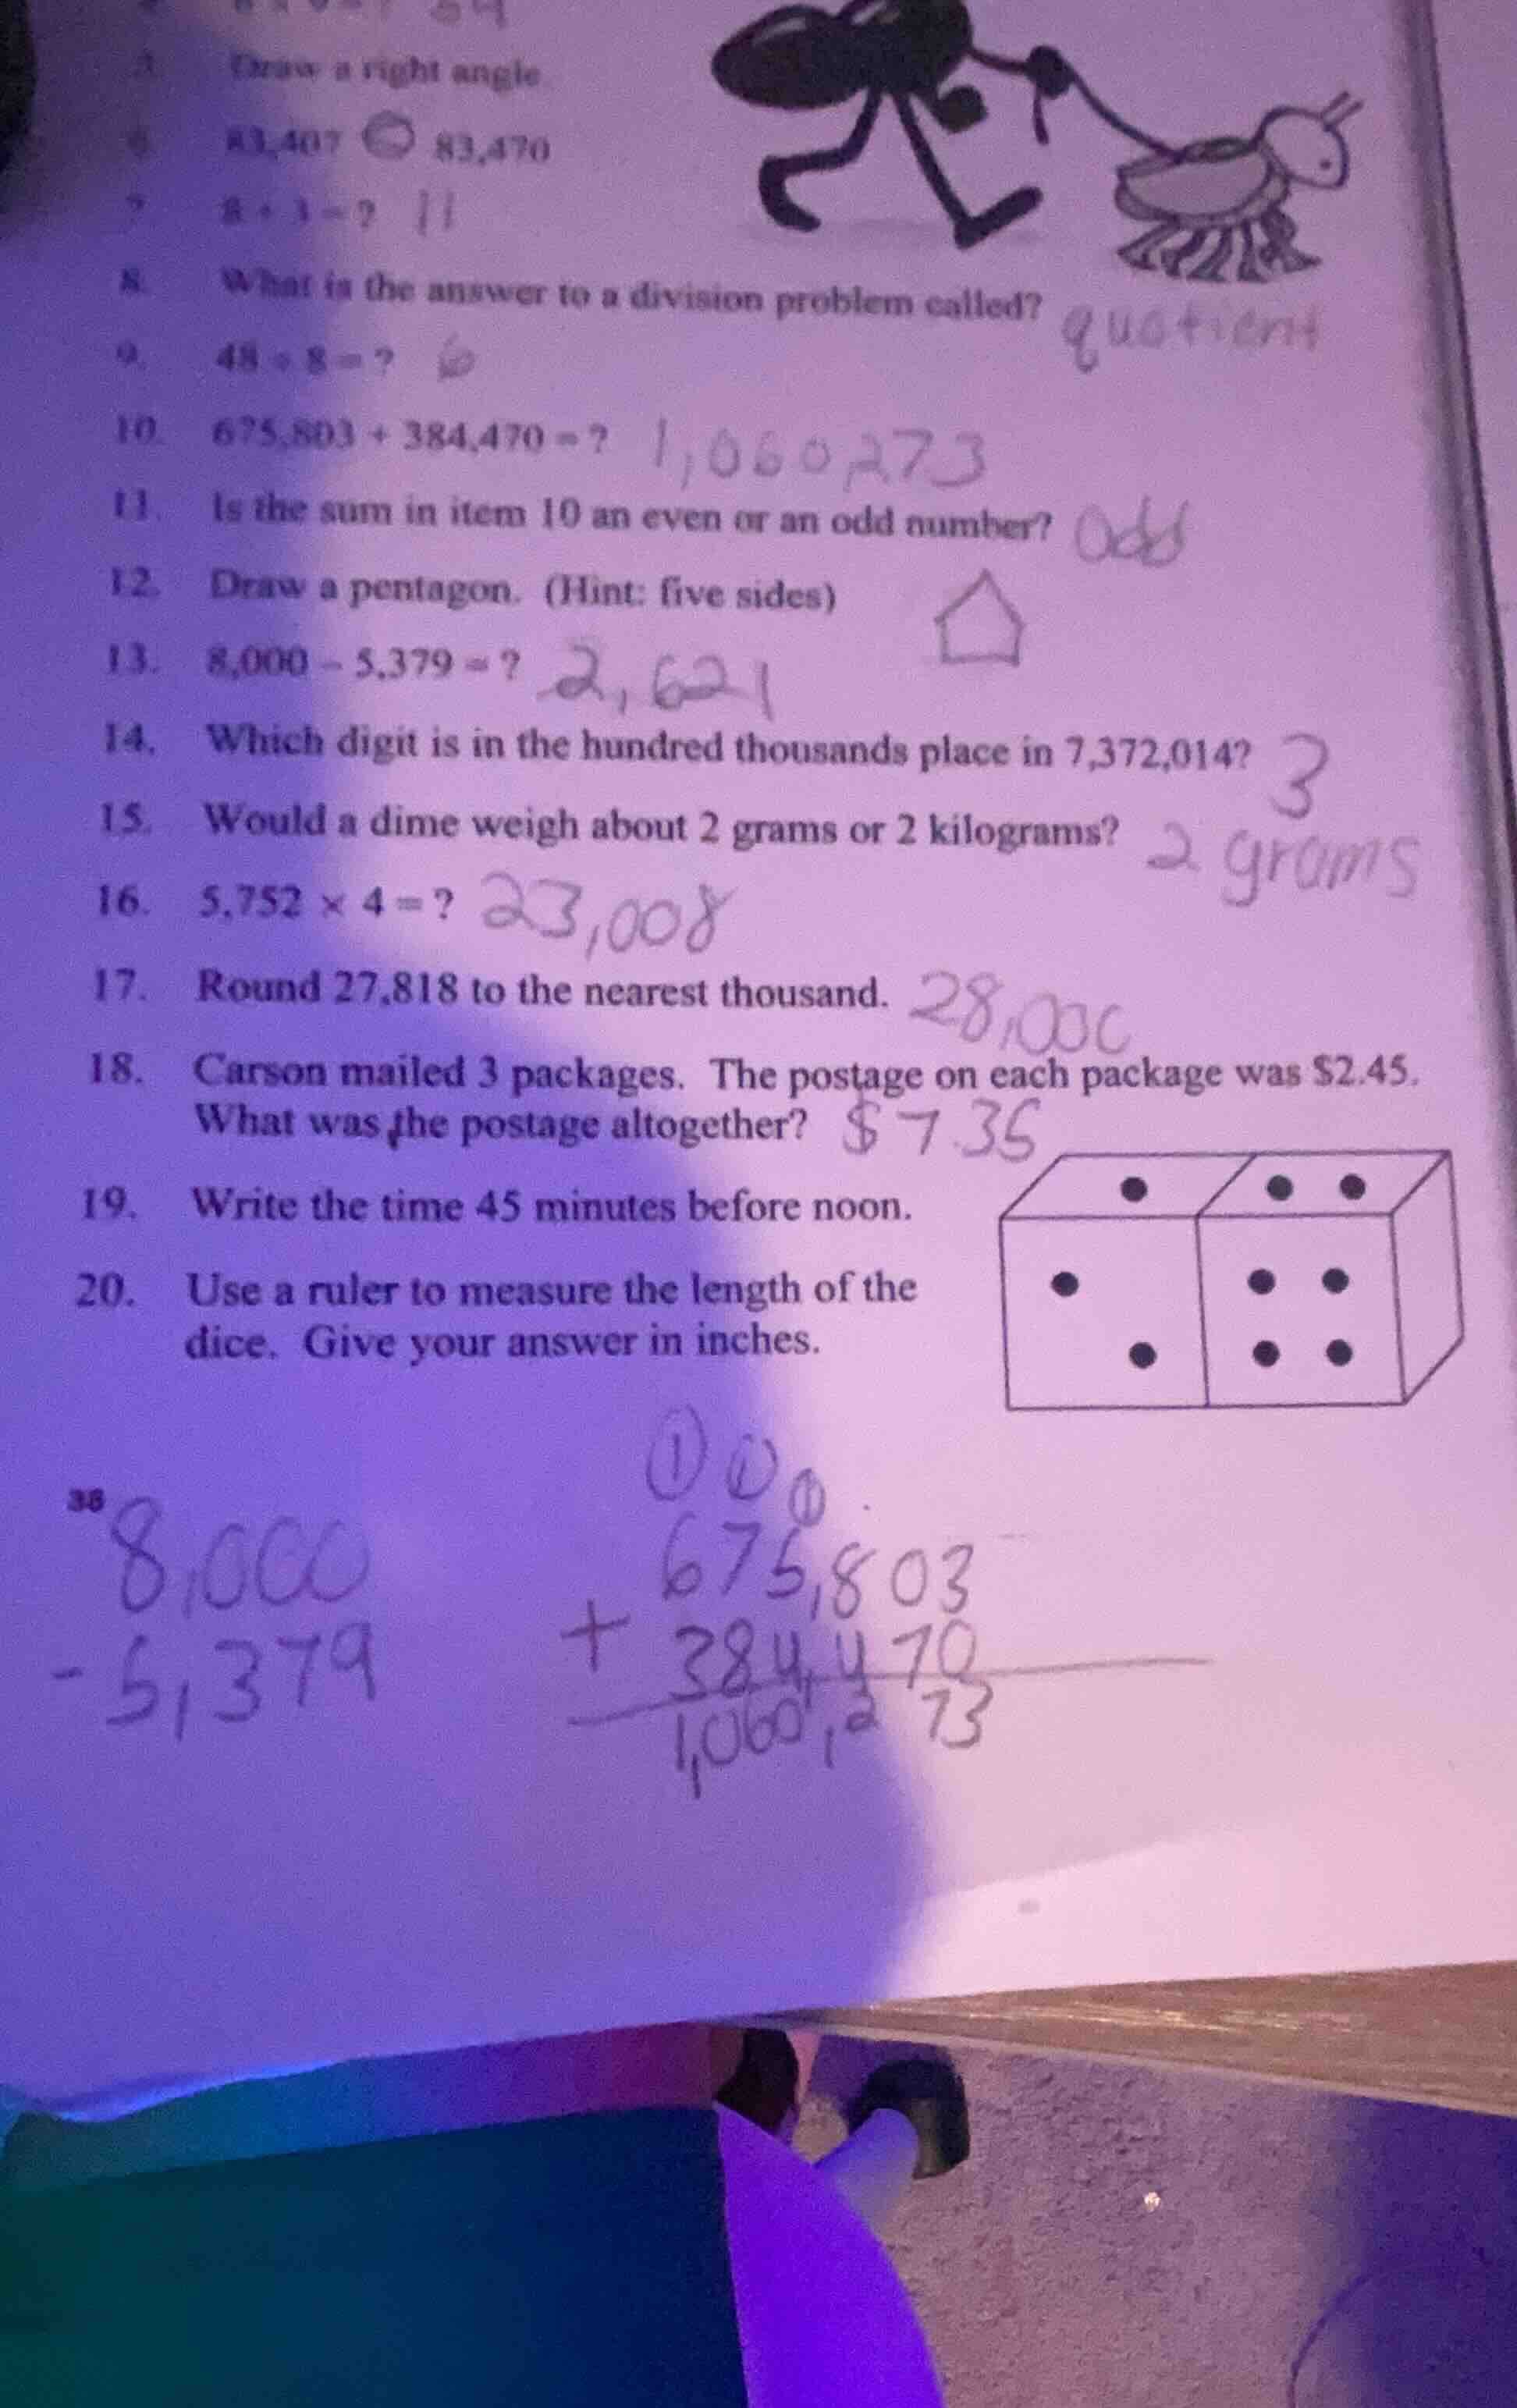 64
Draw a right angle
83,407 83,470
7. 8 + 3 = ? 11
8. What is the answer to a division problem called? quotient
9. 48 ÷ 8 = ? 6
10. 675,803 + 384,470 = ? 1,060,273
11. Is the sum in item 10 an even or an odd number? odd
12. Draw a pentagon. (Hint: five sides)
13. 8,000 – 5,379 = ? 2,621
14. Which digit is in the hundred thousands place in 7,372,014? 3
15. Would a dime weigh about 2 grams or 2 kilograms? 2 grams
16. 5,752 × 4 = ? 23,008
17. Round 27,818 to the nearest thousand. 28,000
18. Carson mailed 3 packages. The postage on each package was $2.45.
What was the postage altogether? $7.35
19. Write the time 45 minutes before noon.
20. Use a ruler to measure the length of the
dice. Give your answer in inches.
38
8,000
- 5,379
1 1 1
675,803
+ 384,470
1,060,273